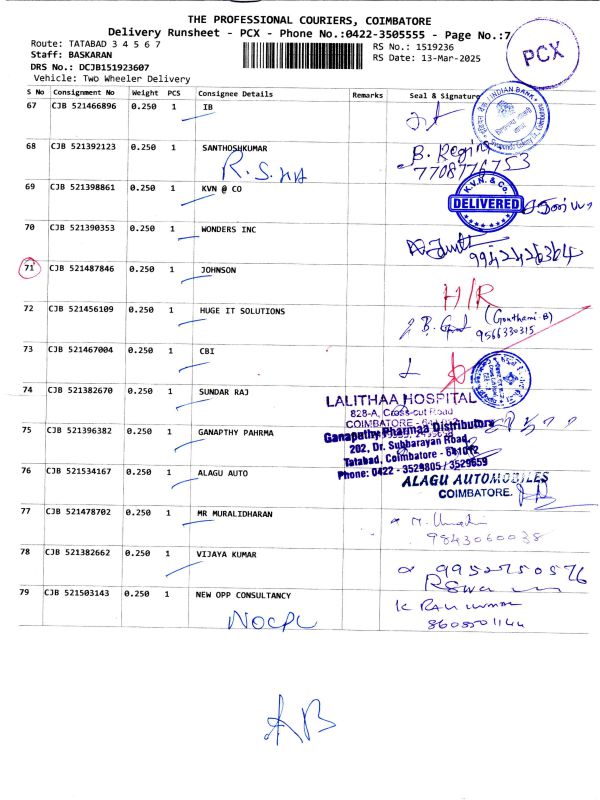 THE PROFESSIONAL COURIERS, COIMBATORE
Delivery Runsheet - PCX - Phone No.:0422-3505555 - Page No.:7
PCX
Route: TATABAD 3 4 5 6 7
Staff: BASKARAN
DRS No.: DCJB151923607
Vehicle: Two Wheeler Delivery
RS No.: 1519236
RS Date: 13-Mar-2025
S No Consignment No Weight PCS Consignee Details Remarks Seal & Signature
67 CJB 521466896 0.250 1 IB
INDIAN BANK
68 CJB 521392123 0.250 1 SANTHOSHKUMAR
R.S.
B. Regina
7708776753
69 CJB 521398861 0.250 1 KVN @ CO
K.V.N. & Co.
DELIVERED
70 CJB 521390353 0.250 1 WONDERS INC
9942426364
71 CJB 521487846 0.250 1 JOHNSON
H/R
72 CJB 521456109 0.250 1 HUGE IT SOLUTIONS
(Gouthami.B)
9566330315
73 CJB 521467004 0.250 1 CBI
74 CJB 521382670 0.250 1 SUNDAR RAJ
LALITHAA HOSPITAL
828-A, Cross-cut Road
COIMBATORE - 641 012
75 CJB 521396382 0.250 1 GANAPTHY PAHRMA
Ganapathy Pharmaa Distributors
202, Dr. Subbarayan Road,
Tatabad, Coimbatore - 641012
Phone: 0422 - 3529805 / 3529659
76 CJB 521534167 0.250 1 ALAGU AUTO
ALAGU AUTOMOBILES
COIMBATORE.
77 CJB 521478702 0.250 1 MR MURALIDHARAN
9843060038
78 CJB 521382662 0.250 1 VIJAYA KUMAR
9952750576
79 CJB 521503143 0.250 1 NEW OPP CONSULTANCY
NOCPL
K RAJKUMAR
8608501144